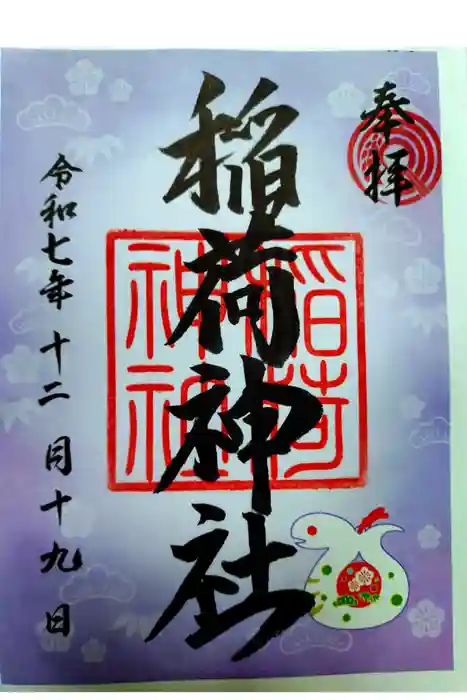 奉拝
稲荷神社
稲荷神社
令和七年十二月十九日